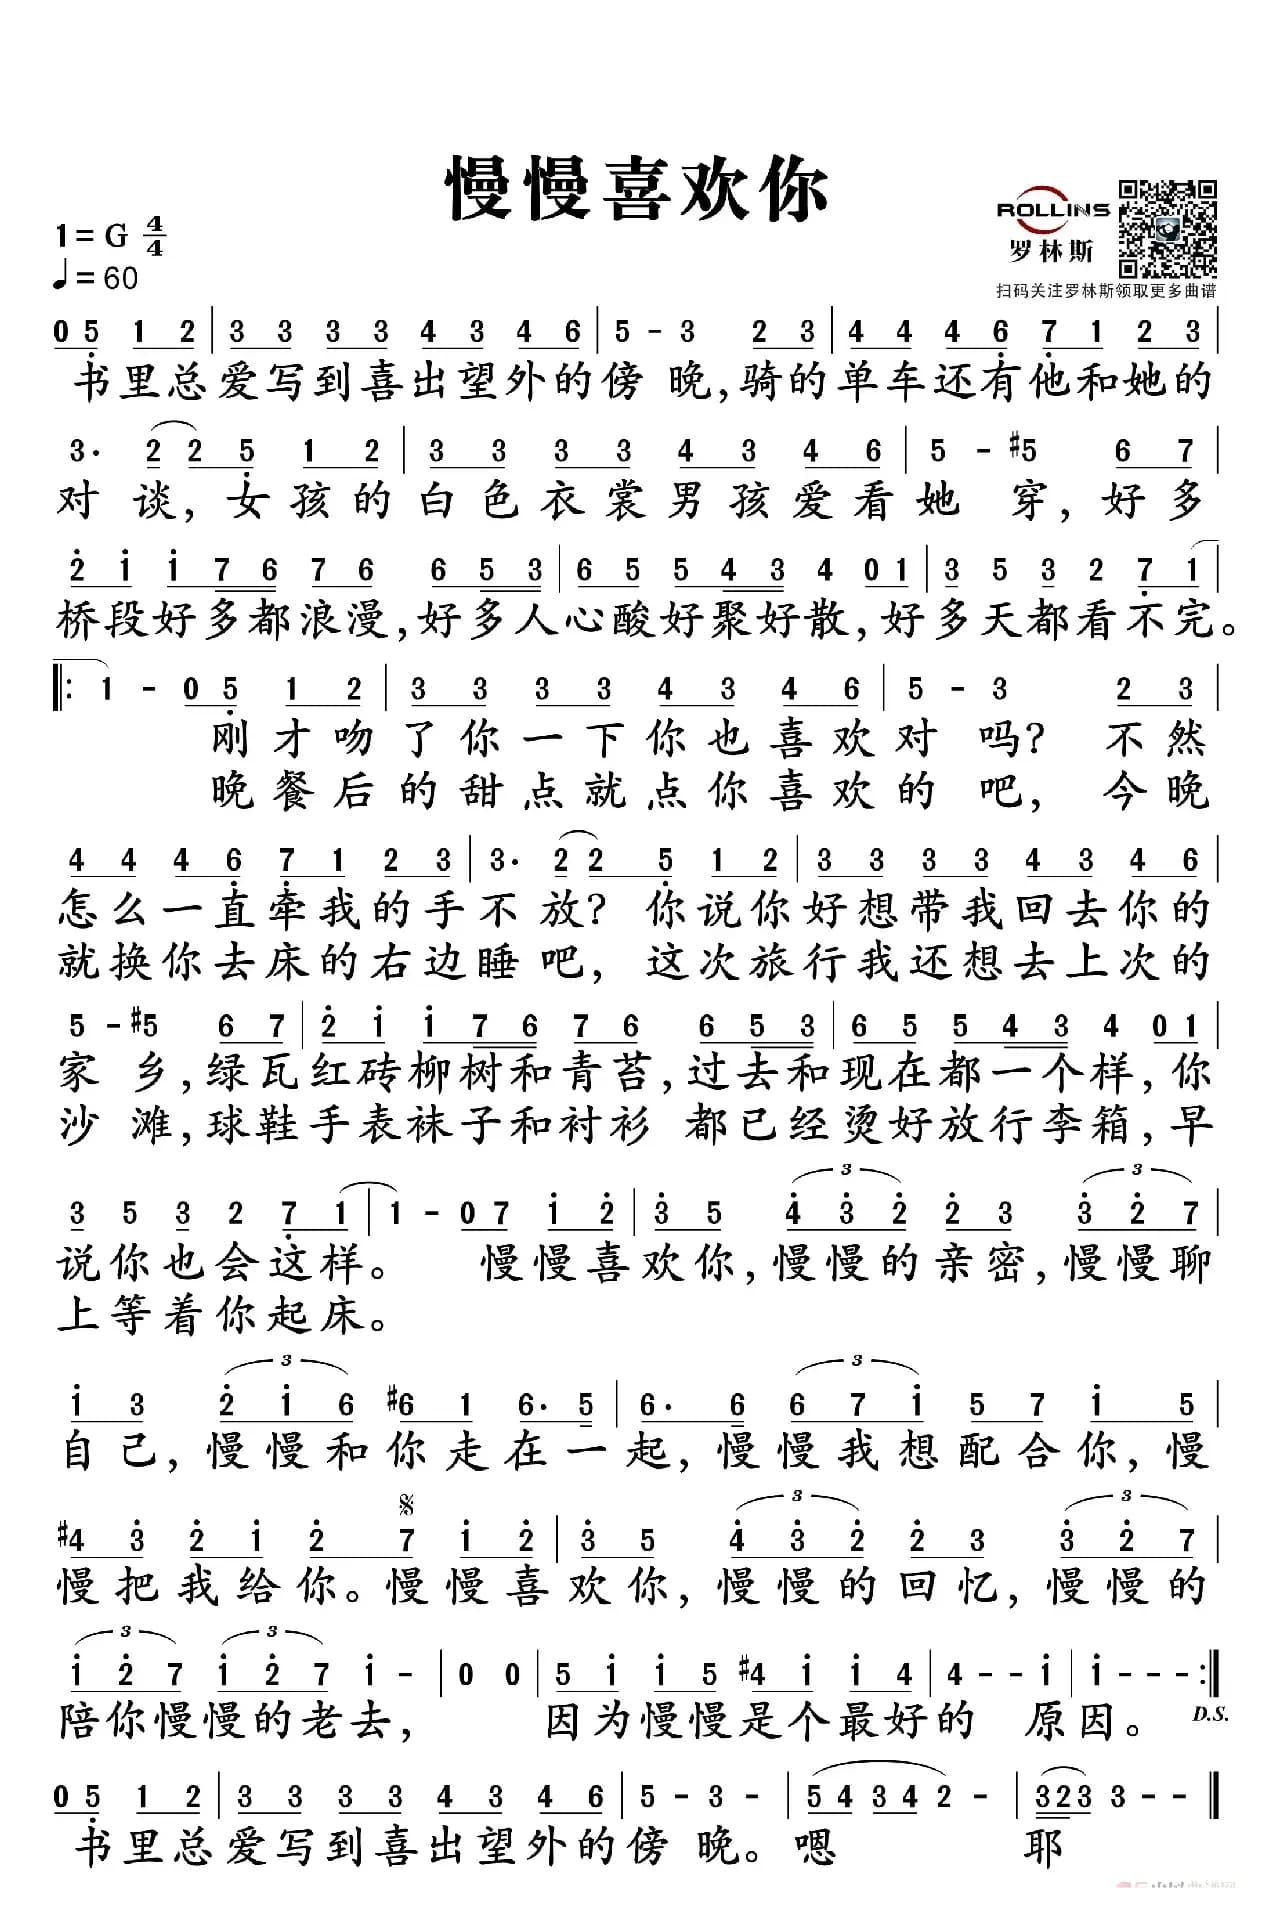 慢慢喜欢你
1=G 4/4
♩=60
ROLLINS
罗林斯
扫码关注罗林斯领取更多曲谱
0 5 1 2 | 3 3 3 3 4 3 4 6 | 5 - 3 2 3 | 4 4 4 6 7 1 2 3 |
书里总爱写到喜出望外的傍晚,骑的单车还有他和她的
3· 2 2 5 1 2 | 3 3 3 3 4 3 4 6 | 5 - #5 6 7 |
对谈,女孩的白色衣裳男孩爱看她穿,好多
2 1 1 7 6 7 6 6 5 3 | 6 5 5 4 3 4 0 1 | 3 5 3 2 7 1 |
桥段好多都浪漫,好多人心酸好聚好散,好多天都看不完。
‖: 1 - 0 5 1 2 | 3 3 3 3 4 3 4 6 | 5 - 3 2 3 |
刚才吻了你一下你也喜欢对吗?不然
晚餐后的甜点就点你喜欢的吧,今晚
4 4 4 6 7 1 2 3 | 3· 2 2 5 1 2 | 3 3 3 3 4 3 4 6 |
怎么一直牵我的手不放?你说你好想带我回去你的
就换你去床的右边睡吧,这次旅行我还想去上次的
5 - #5 6 7 | 2 1 1 7 6 7 6 6 5 3 | 6 5 5 4 3 4 0 1 |
家乡,绿瓦红砖柳树和青苔,过去和现在都一个样,你
沙滩,球鞋手表袜子和衬衫 都已经烫好放行李箱,早
3 5 3 2 7 1 | 1 - 0 7 1 2 | 3 5 4 3 2 2 3 3 2 7 |
3 3
说你也会这样。 慢慢喜欢你,慢慢的亲密,慢慢聊
上等着你起床。
1 3 2 1 6 #6 1 6· 5 | 6· 6 6 7 1 5 7 1 5 |
3 3
自己,慢慢和你走在一起,慢慢我想配合你,慢
#4 3 2 1 2 7 1 2 | 3 5 4 3 2 2 3 3 2 7 |
3 3
慢把我给你。慢慢喜欢你,慢慢的回忆,慢慢的
1 2 7 1 2 7 1 - | 0 0 | 5 1 1 5 #4 1 1 4 | 4 - - 1 | 1 - - - :‖
3 3
陪你慢慢的老去, 因为慢慢是个最好的 原因。 D.S.
0 5 1 2 | 3 3 3 3 4 3 4 6 | 5 - 3 - | 5 4 3 4 2 - | 3 2 3 3 - - ‖
书里总爱写到喜出望外的傍晚。嗯 耶